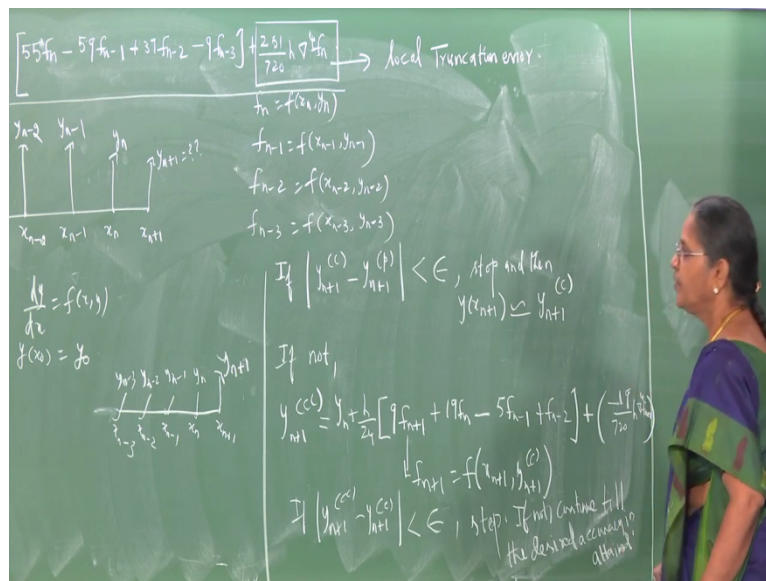 [55fn − 59fn-1 + 37fn-2 − 9fn-3] + 251/720 h ∇⁴fn → local Truncation error.
fn = f(xn, yn)
fn-1 = f(xn-1, yn-1)
fn-2 = f(xn-2, yn-2)
fn-3 = f(xn-3, yn-3)
yn-2 yn-1 yn yn+1 = ??
xn-2 xn-1 xn xn+1
dy/dx = f(x, y)
y(x0) = y0
yn-3 yn-2 yn-1 yn yn+1
xn-3 xn-2 xn-1 xn xn+1
If |yn+1^(c) − yn+1^(p)| < ϵ, stop and then
y(xn+1) ≃ yn+1^(c)
If not,
yn+1^(cc) = yn + h/24 [9fn+1 + 19fn − 5fn-1 + fn-2] + (−19/720 h
fn+1 = f(xn+1, yn+1^(c))
If |yn+1^(cc) − yn+1^(c)| < ϵ, stop. If not, continue till
the desired accuracy is
attained.